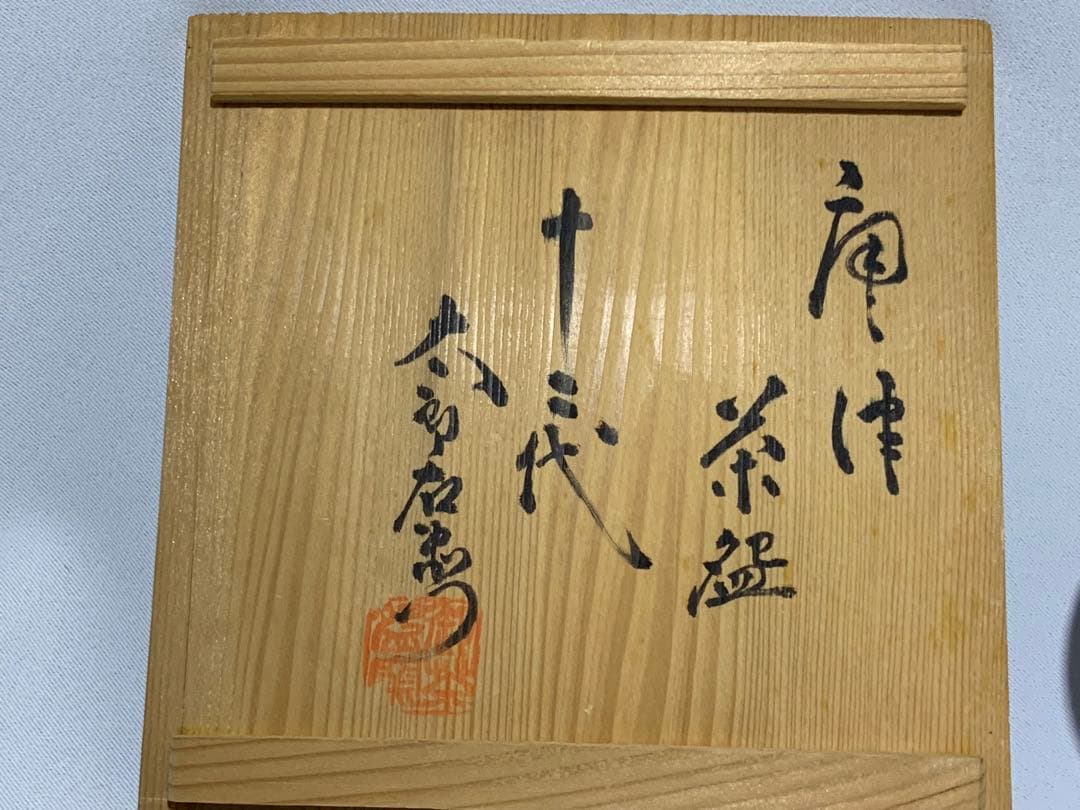 唐津
茶盌
十三代
太郎右衛門